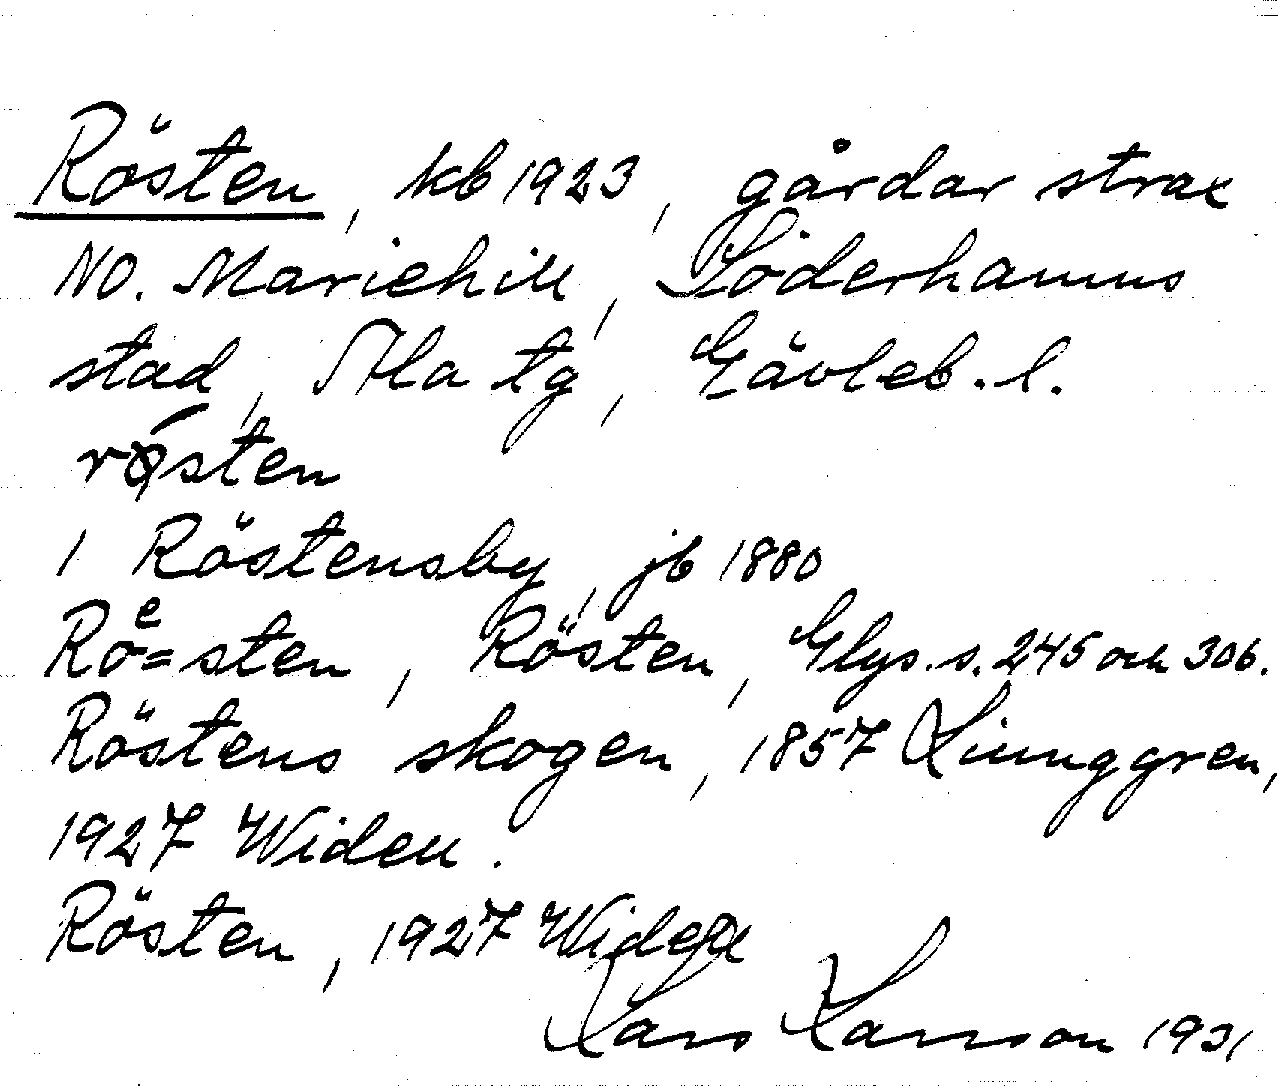 Rösten, kb 1923, gårdar strax
NO. Mariehill, Söderhamns
stad, Ala tg, Gävleb. l.
rǿsten
1 Röstensby, jb 1880
Roͤ=sten, Rösten, Glys. s. 245 och 306.
Röstens skogen, 1857 Ljunggren,
1927 Widen.
Rösten, 1927 Widen
Lars Larsson 1931